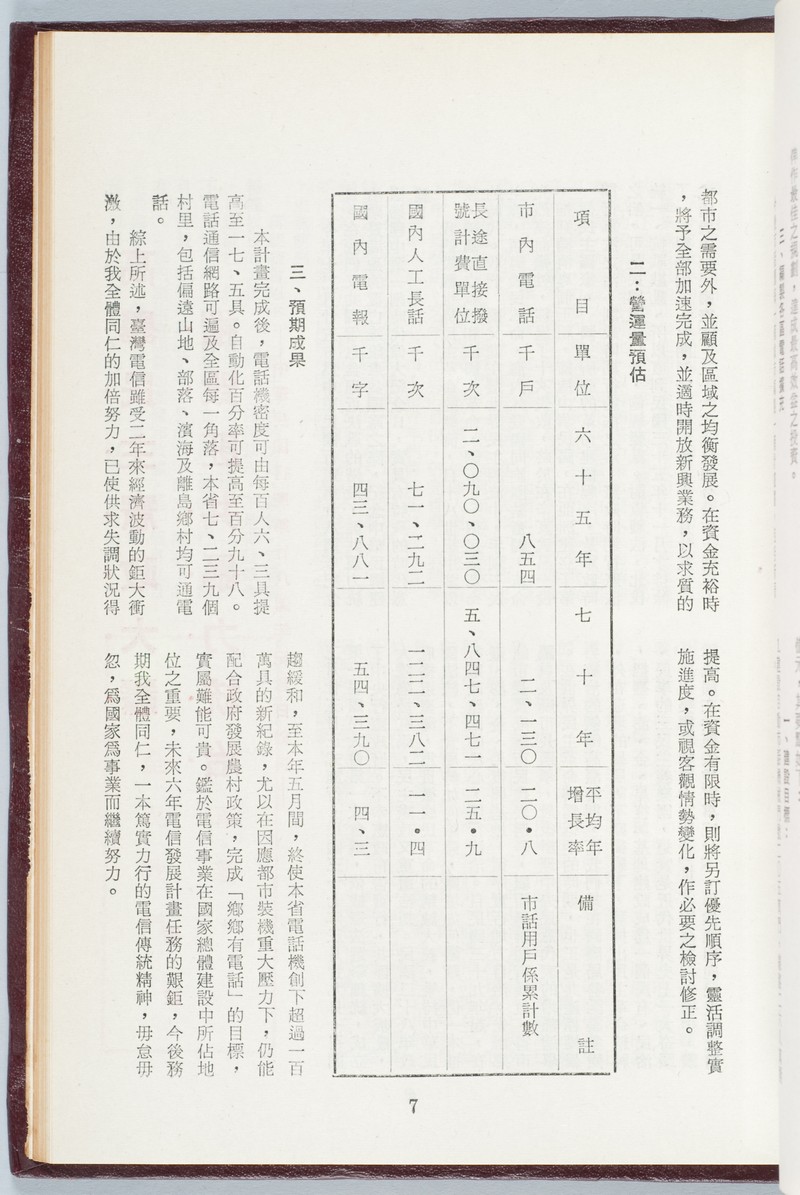 都市之需要外，並顧及區域之均衡發展。在資金充裕時
，將予全部加速完成，並適時開放新興業務，以求質的
提高。在資金有限時，則將另訂優先順序，靈活調整實
施進度，或視客觀情勢變化，作必要之檢討修正。
二：營運量預估
項目 單位 六十五年 七十年 平均年增長率 備註
市內電話 千戶 八五四 二、一三〇 二〇・八 市話用戶係累計數
長途直接撥號計費單位 千次 二、〇九〇、〇三〇 五、八四七、四七一 二五・九
國內人工長話 千次 七一、二九二 一二二、三八二 一一・四
國內電報 千字 四三、八八一 五四、三九〇 四、三
三、預期成果
本計畫完成後，電話機密度可由每百人六、三具提
高至一七、五具。自動化百分率可提高至百分九十八。
電話通信網路可遍及全區每一角落，本省七、二三九個
村里，包括偏遠山地、部落、濱海及離島鄉村均可通電
話。
綜上所述，臺灣電信雖受二年來經濟波動的鉅大衝
激，由於我全體同仁的加倍努力，已使供求失調狀況得
趨緩和，至本年五月間，終使本省電話機創下超過一百
萬具的新紀錄，尤以在因應都市裝機重大壓力下，仍能
配合政府發展農村政策，完成「鄉鄉有電話」的目標，
實屬難能可貴。鑑於電信事業在國家總體建設中所佔地
位之重要，未來六年電信發展計畫任務的艱鉅，今後務
期我全體同仁，一本篤實力行的電信傳統精神，毋怠毋
忽，爲國家爲事業而繼續努力。
7